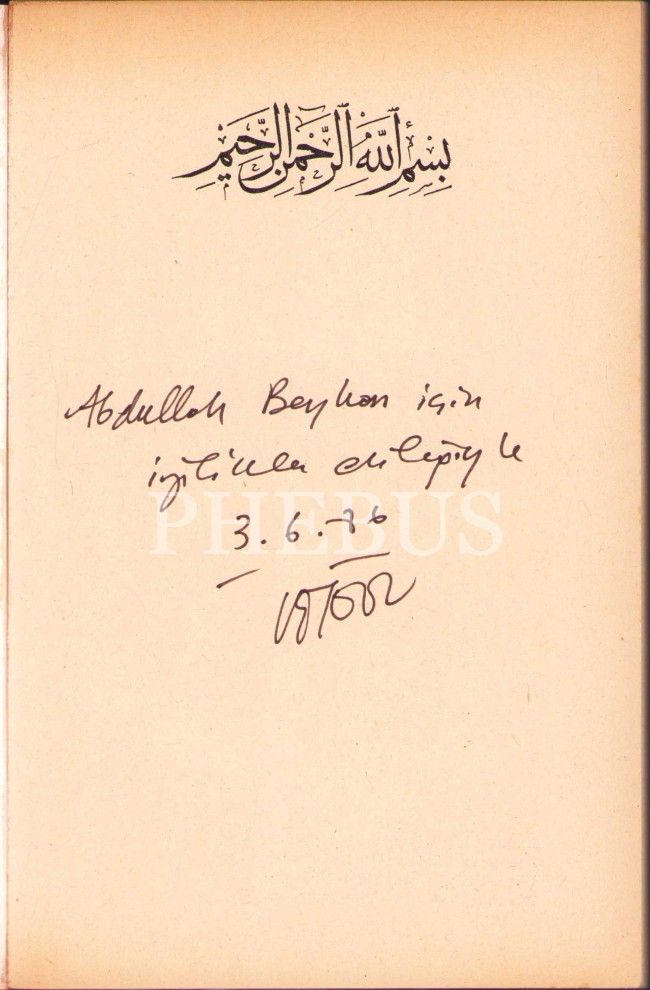 بِسْمِ اللّٰهِ الرَّحْمٰنِ الرَّحِيْمِ
Abdullah Beyhan için
iyilikler dileğiyle
PHEBUS